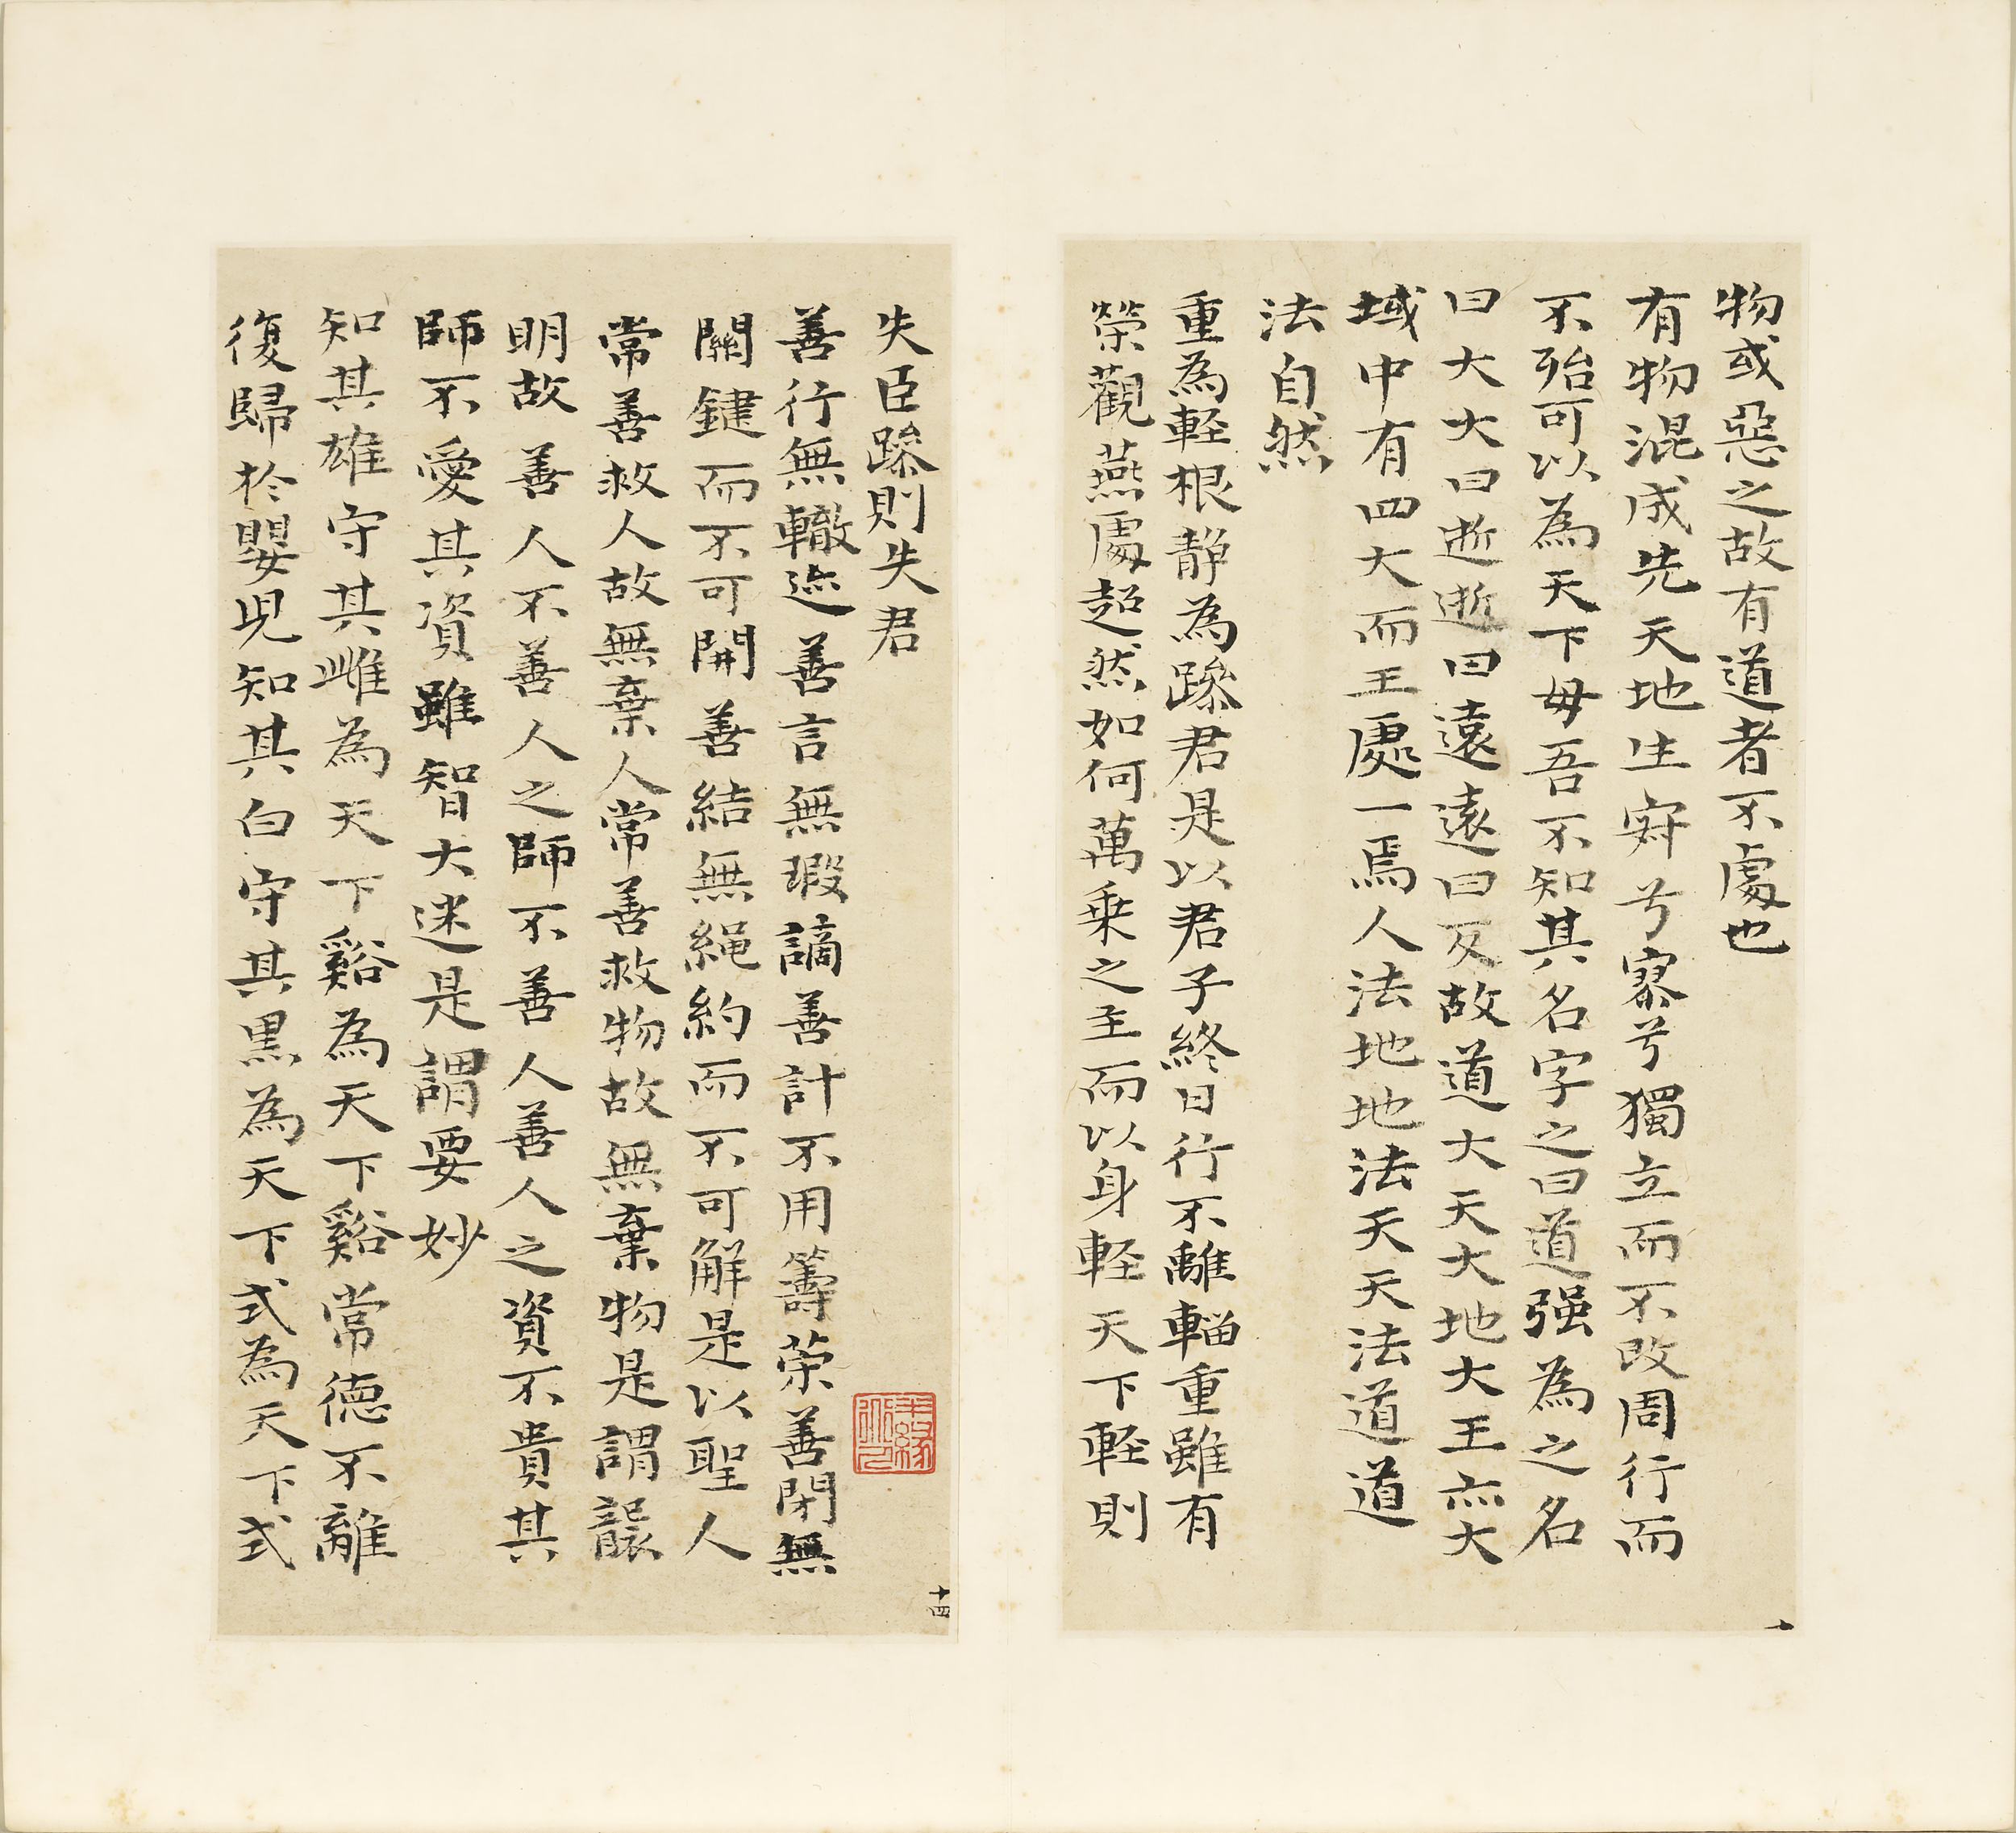 物或惡之故有道者不處也
有物混成先天地生寂兮寥兮獨立而不改周行而
不殆可以為天下母吾不知其名字之曰道强為之名
曰大大曰逝逝曰遠遠曰反故道大天大地大王亦大
域中有四大而王處一焉人法地地法天天法道道
法自然
重為軽根静為躁君是以君子終日行不離輜重雖有
榮觀燕處超然如何萬乗之主而以身軽天下軽則
失臣躁則失君
善行無轍迹善言無瑕謫善計不用籌䇲善閉無
關鍵而不可開善結無繩約而不可解是以聖人
常善救人故無棄人常善救物故無棄物是謂襲
明故善人不善人之師不善人善人之資不貴其
師不愛其資雖智大迷是謂要妙
知其雄守其雌為天下谿為天下谿常德不離
復歸於嬰児知其白守其黒為天下式為天下式
十四